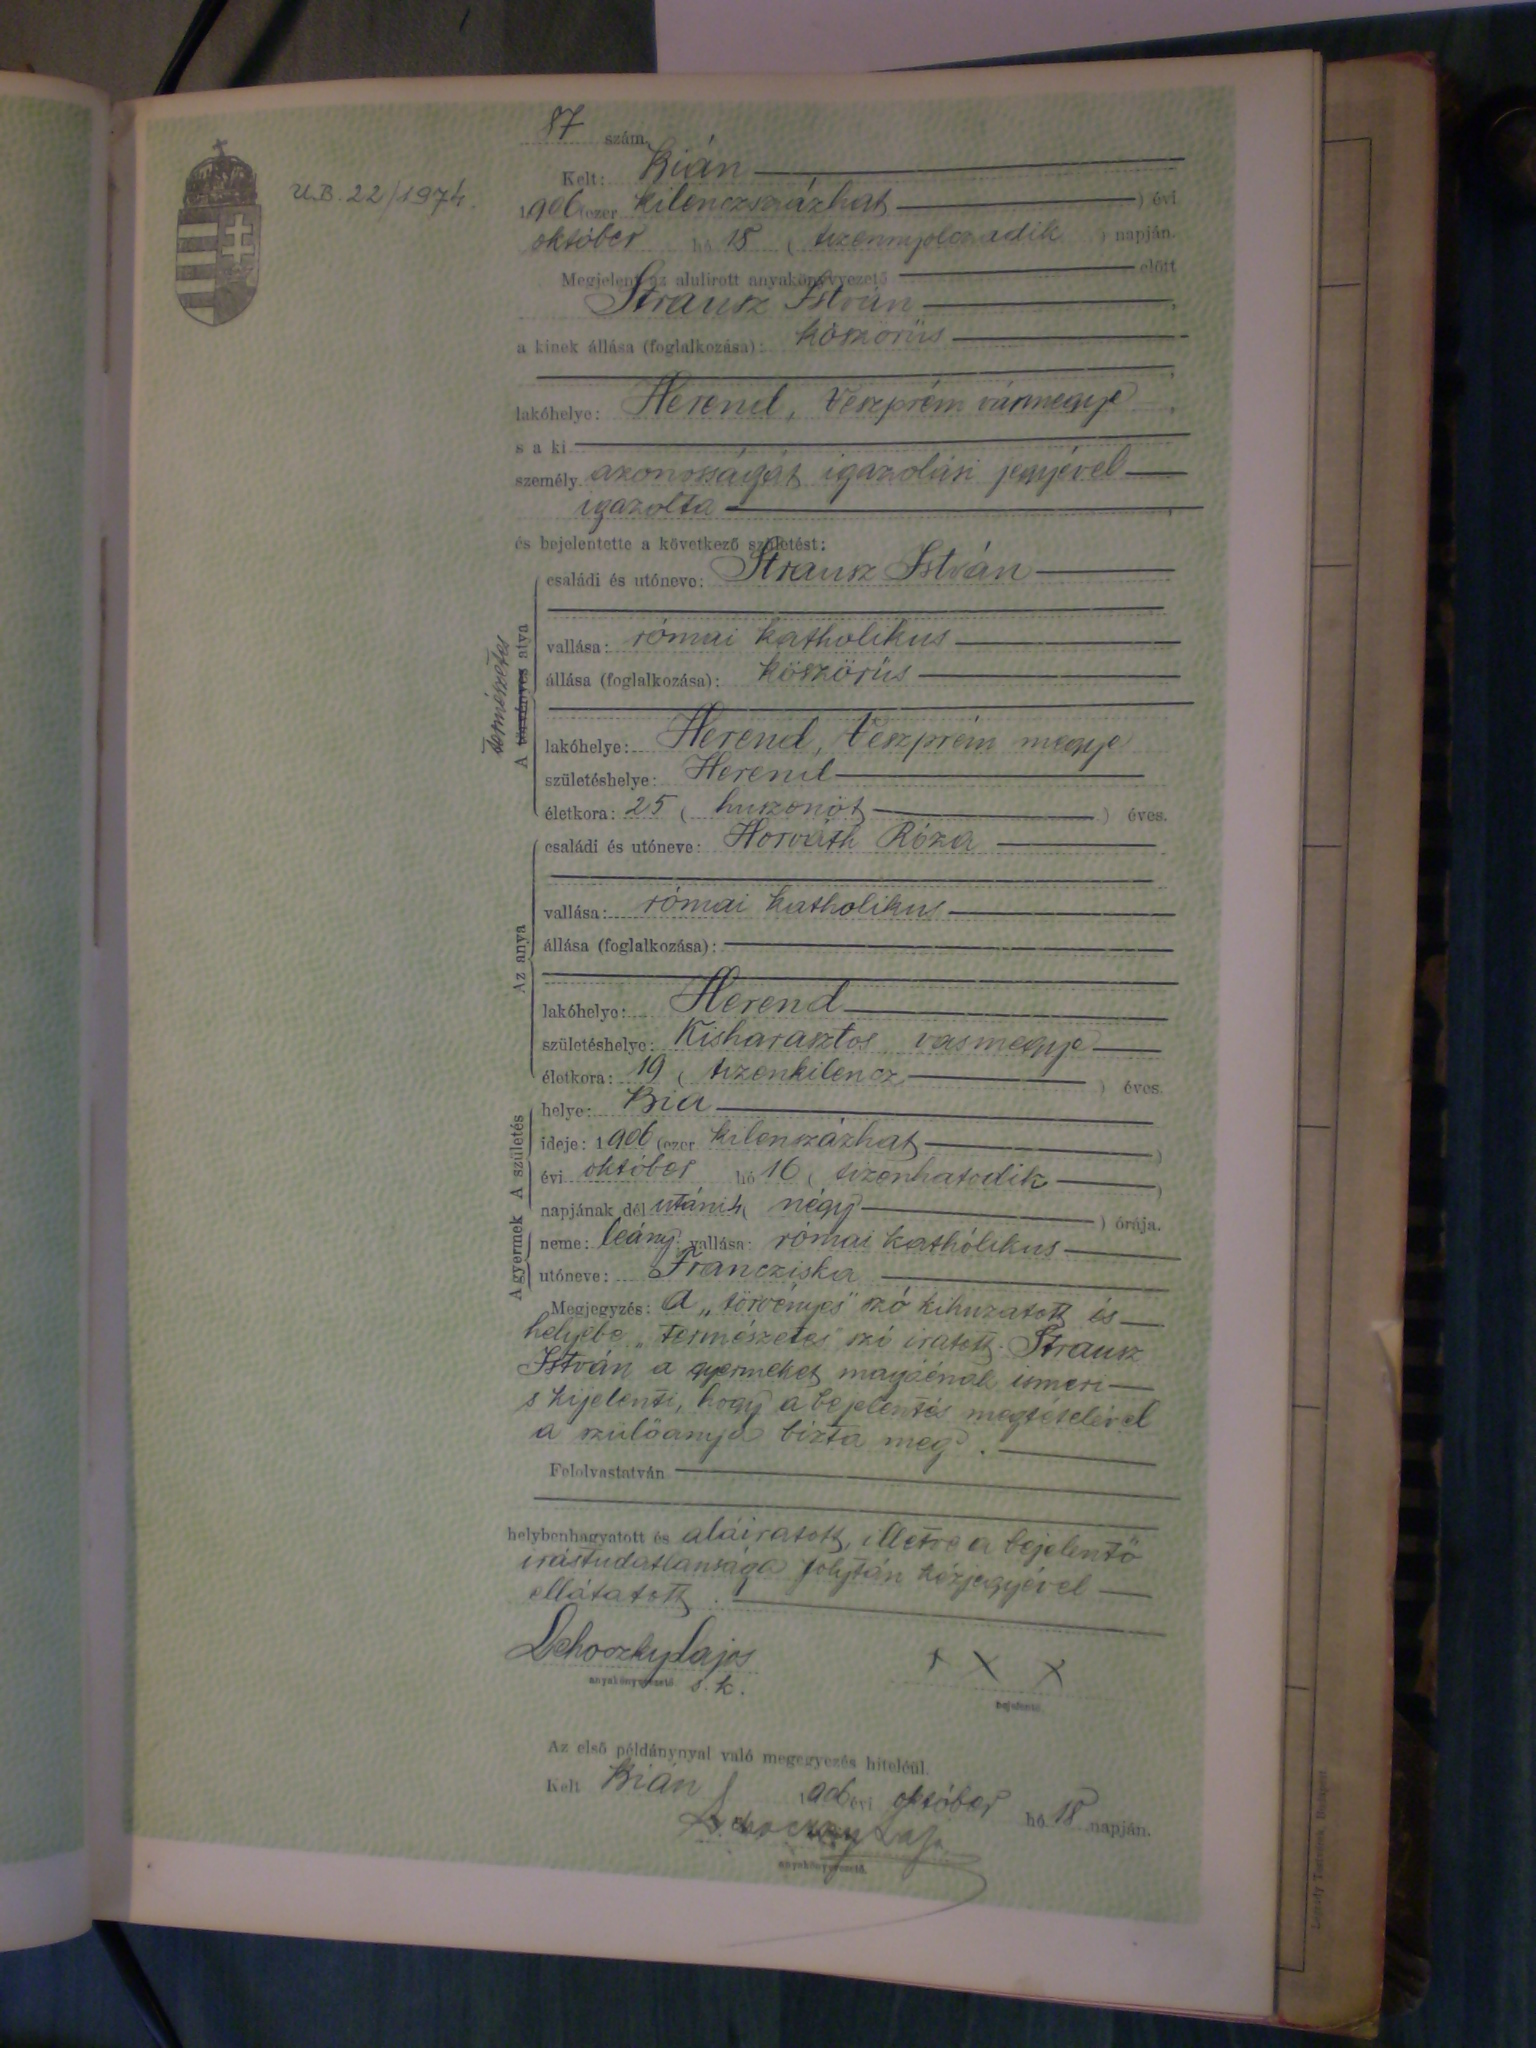 87 szám.
U.B. 22/1974.
Kelt: Bián
1906 (ezer kilenczszázhat ) évi
október hó 18 ( tizennyolczadik ) napján.
Megjelent az alulirott anyakönyvvezető előtt
Strausz István
a kinek állása (foglalkozása): köszörüs
lakóhelye: Herend, Veszprém vármegye
s a ki
személy azonosságát igazolási jegyével
igazolta
és bejelentette a következő születést:
A törvényes atya
természetes
családi és utóneve: Strausz István
vallása: római katholikus
állása (foglalkozása): köszörüs
lakóhelye: Herend, Veszprém megye
születéshelye: Herend
életkora: 25 ( huszonöt ) éves.
Az anya
családi és utóneve: Horváth Róza
vallása: római katholikus
állása (foglalkozása):
lakóhelye: Herend
születéshelye: Kisharasztos vasmegye
életkora: 19 ( tizenkilencz ) éves.
A születés
helye: Bia
ideje: 1906 (ezer kilenszázhat )
évi október hó 16 ( tizenhatodik )
napjának dél utáni 4 ( négy ) órája.
A gyermek
neme: leány vallása: római kathólikus
utóneve: Francziska
Megjegyzés: A „törvényes" szó kihuzatott és
helyébe „természetes" szó iratott. Strausz
István a gyermeket magáénak ismeri
s kijelenti, hogy a bejelentés megtételével
a szülőanya bizta meg.
Felolvastatván
helybenhagyatott és aláiratott, illetve a bejelentő
irástudatlansága folytán kézjegyével
ellátatott.
Lehoczky Lajos
anyakönyvvezető s. k.
+ X X
bejelentő.
Az első példánynyal való megegyezés hiteléül.
Kelt Bián 1906 évi október hó 18 napján.
Lehoczky Lajos
anyakönyvvezető.